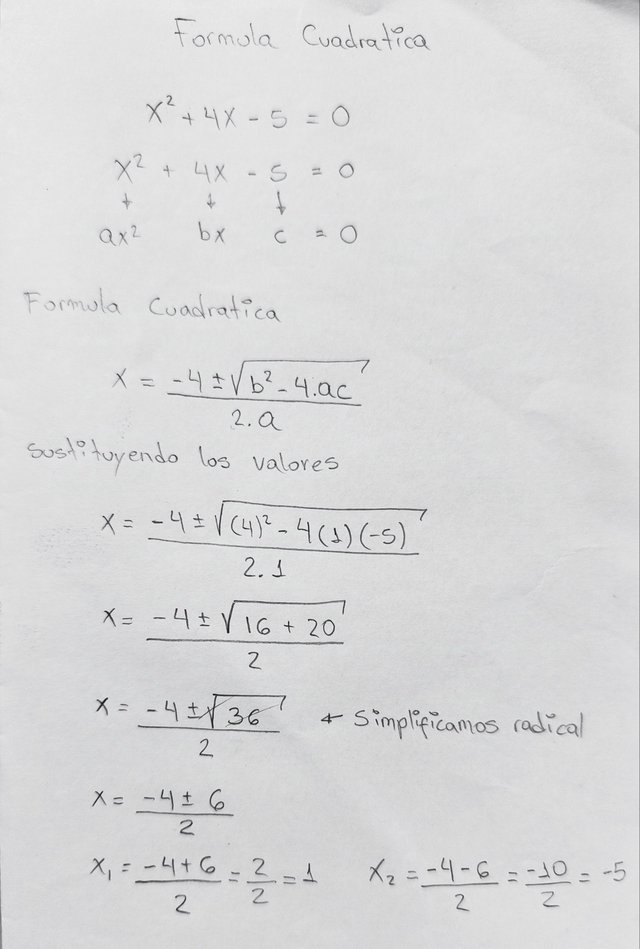 Formula Cuadratica
x² + 4x - 5 = 0
x² + 4x - 5 = 0
↓ ↓ ↓
ax² bx c = 0
Formula Cuadratica
x = (-4 ± √(b² - 4.ac)) / 2.a
sustituyendo los valores
x = (-4 ± √((4)² - 4(1)(-5))) / 2.1
x = (-4 ± √(16 + 20)) / 2
x = (-4 ± √36) / 2 ← simplificamos radical
x = (-4 ± 6) / 2
x₁ = (-4+6) / 2 = 2/2 = 1 x₂ = (-4-6) / 2 = -10/2 = -5